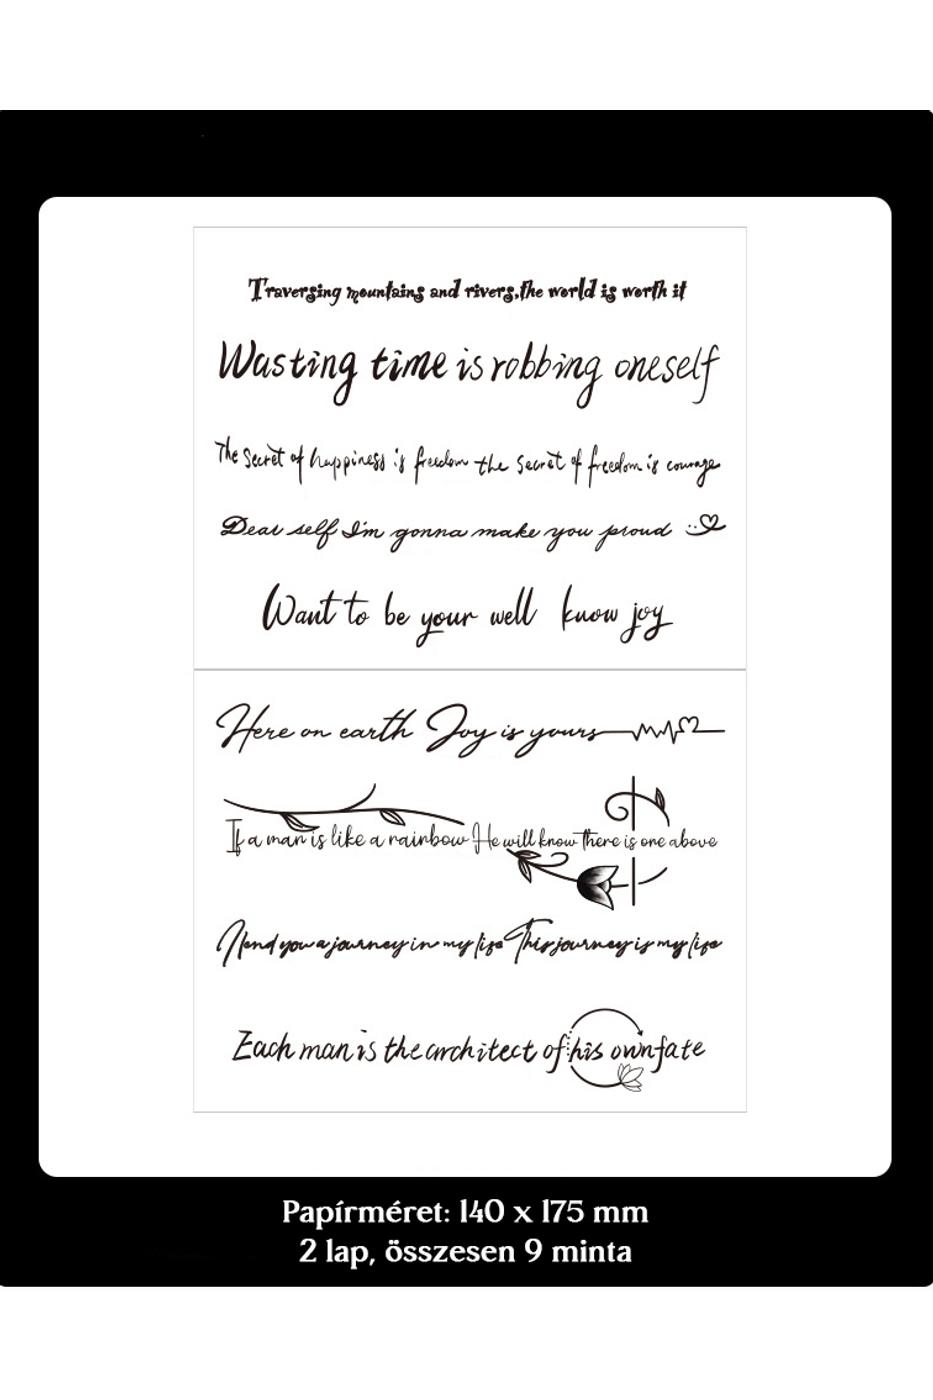 Traversing mountains and rivers,the world is worth it
Wasting time is robbing oneself
The Secret of happiness is freedom the secret of freedom is courage
Dear self I'm gonna make you proud
Want to be your well know joy
Here on earth Joy is yours
If a man is like a rainbow He will know there is one above
you a journey in my life This journey is my life
Each man is the architect of his own fate
Papírméret: 140 x 175 mm
2 lap, összesen 9 minta